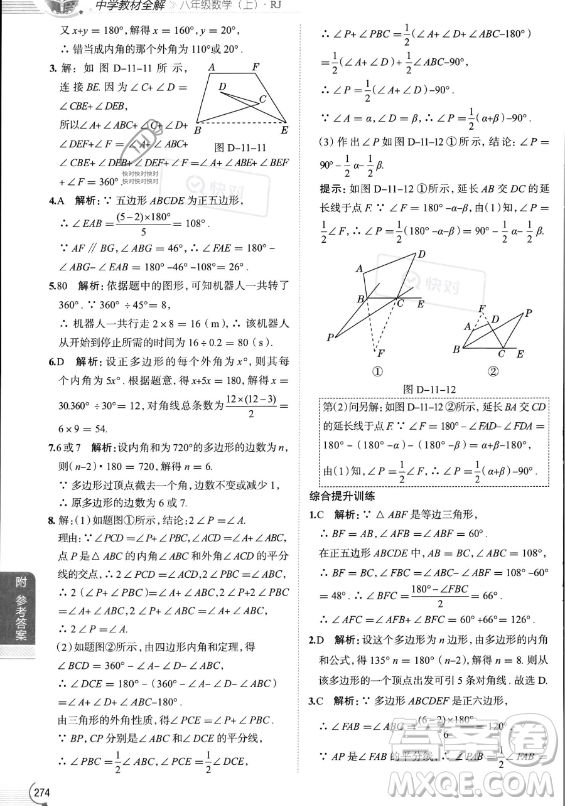 中学教材全解 八年级数学(上)·RJ
又x+y = 180°, 解得 x = 160°, y = 20°.
∴ 错当成内角的那个外角为 110°或 20°.
3. 解: 如图 D-11-11 所示,
连接 BE. 因为∠C+∠D =
∠CBE+∠DEB,
所以∠A+∠ABC+∠C+
∠DEF+∠F = ∠A+∠ABC+
∠CBE+∠DEB+∠DEF+∠F = ∠A+∠ABE+∠BEF
+∠F = 360°.
A
F
D
C
B
E
图 D-11-11
4.A 解析: ∵ 五边形 ABCDE 为正五边形,
∴ ∠EAB = (5-2)×180°/5 = 108°.
∵ AF∥BG, ∠ABG = 46°, ∴ ∠FAE = 180°-
∠ABG-∠EAB = 180°-46°-108° = 26°.
5.80 解析: 依据题中的图形, 可知机器人一共转了
360°. ∵ 360°÷45° = 8,
∴ 机器人一共行走 2×8 = 16 (m), ∴ 该机器人
从开始到停止所需的时间为 16÷0.2 = 80 (s).
6.D 解析: 设正多边形的每个外角为 x°, 则其每
个内角为 5x°. 根据题意, 得 x+5x = 180, 解得 x =
30. 360°÷30° = 12, 对角线总条数为 12×(12-3)/2 =
6×9 = 54.
7.6 或 7 解析: 设内角和为 720°的多边形的边数为 n,
则(n-2)·180° = 720°, 解得 n = 6.
∵ 多边形过顶点截去一个角, 边数不变或减少 1,
∴ 原多边形的边数为 6 或 7.
8. 解: (1) 如题图①所示, 结论: 2∠P = ∠A.
理由: ∵ ∠PCD = ∠P+∠PBC, ∠ACD = ∠A+∠ABC,
点 P 是△ABC 的内角∠ABC 和外角∠ACD 的平分
线的交点, ∴ 2∠PCD = ∠ACD, 2∠PBC = ∠ABC,
∴ 2(∠P+∠PBC) = ∠A+∠ABC, 2∠P+2∠PBC
= ∠A+∠ABC, 2∠P+∠ABC = ∠A+∠ABC,
∴ 2∠P = ∠A.
(2) 如题图②所示, 由四边形内角和定理, 得
∠BCD = 360°-∠A-∠D-∠ABC,
∴ ∠DCE = 180°-(360°-∠A-∠D-∠ABC)
= ∠A+∠D+∠ABC-180°.
由三角形的外角性质, 得∠PCE = ∠P+∠PBC.
∵ BP, CP 分别是∠ABC 和∠DCE 的平分线,
∴ ∠PBC = 1/2∠ABC, ∠PCE = 1/2∠DCE,
∴ ∠P+∠PBC = 1/2(∠A+∠D+∠ABC-180°)
= 1/2(∠A+∠D)+1/2∠ABC-90°,
∴ ∠P = 1/2(∠A+∠D)-90°.
∵ ∠A = α, ∠D = β, ∴ ∠P = 1/2(α+β)-90°.
(3) 作出∠P 如图 D-11-12①所示, 结论: ∠P =
90°-1/2α-1/2β.
提示: 如图 D-11-12①所示, 延长 AB 交 DC 的延
长线于点 F. ∵ ∠F = 180°-α-β, 由(1)知, ∠P =
1/2∠F, ∴ ∠P = 1/2(180°-α-β) = 90°-1/2α-1/2β.
A
D
B
C
E
P
F
①
F
A
D
P
B
C
E
②
图 D-11-12
第(2)问另解: 如图 D-11-12②所示, 延长 BA 交 CD
的延长线于点 F. ∵ ∠F = 180°-∠FAD-∠FDA =
180°-(180°-α)-(180°-β) = α+β-180°,
由(1)知, ∠P = 1/2∠F, ∴ ∠P = 1/2(α+β)-90°.
综合提升训练
1.C 解析: ∵ △ABF 是等边三角形,
∴ BF = AB, ∠AFB = ∠ABF = 60°.
在正五边形 ABCDE 中, AB = BC, ∠ABC = 108°,
∴ BF = BC, ∠FBC = ∠ABC-∠ABF = 108°-60°
= 48°. ∴ ∠BFC = 180°-∠FBC/2 = 66°,
∴ ∠AFC = ∠AFB+∠BFC = 60°+66° = 126°.
2.D 解析: 设这个多边形为 n 边形, 由多边形的内角
和公式, 得 135°n = 180°(n-2), 解得 n = 8. 则从
该多边形的一个顶点出发可引 5 条对角线. 故选 D.
3.C 解析: ∵ 多边形 ABCDEF 是正六边形,
∴ ∠FAB = (6-2)×180°/6 = 120°.
∵ AP 是∠FAB 的平分线, ∴ ∠PAB = 1/2∠FAB =
附 参考答案
274
快对
快对快对快对
快对快对快对
作业帮
MXQE.COM